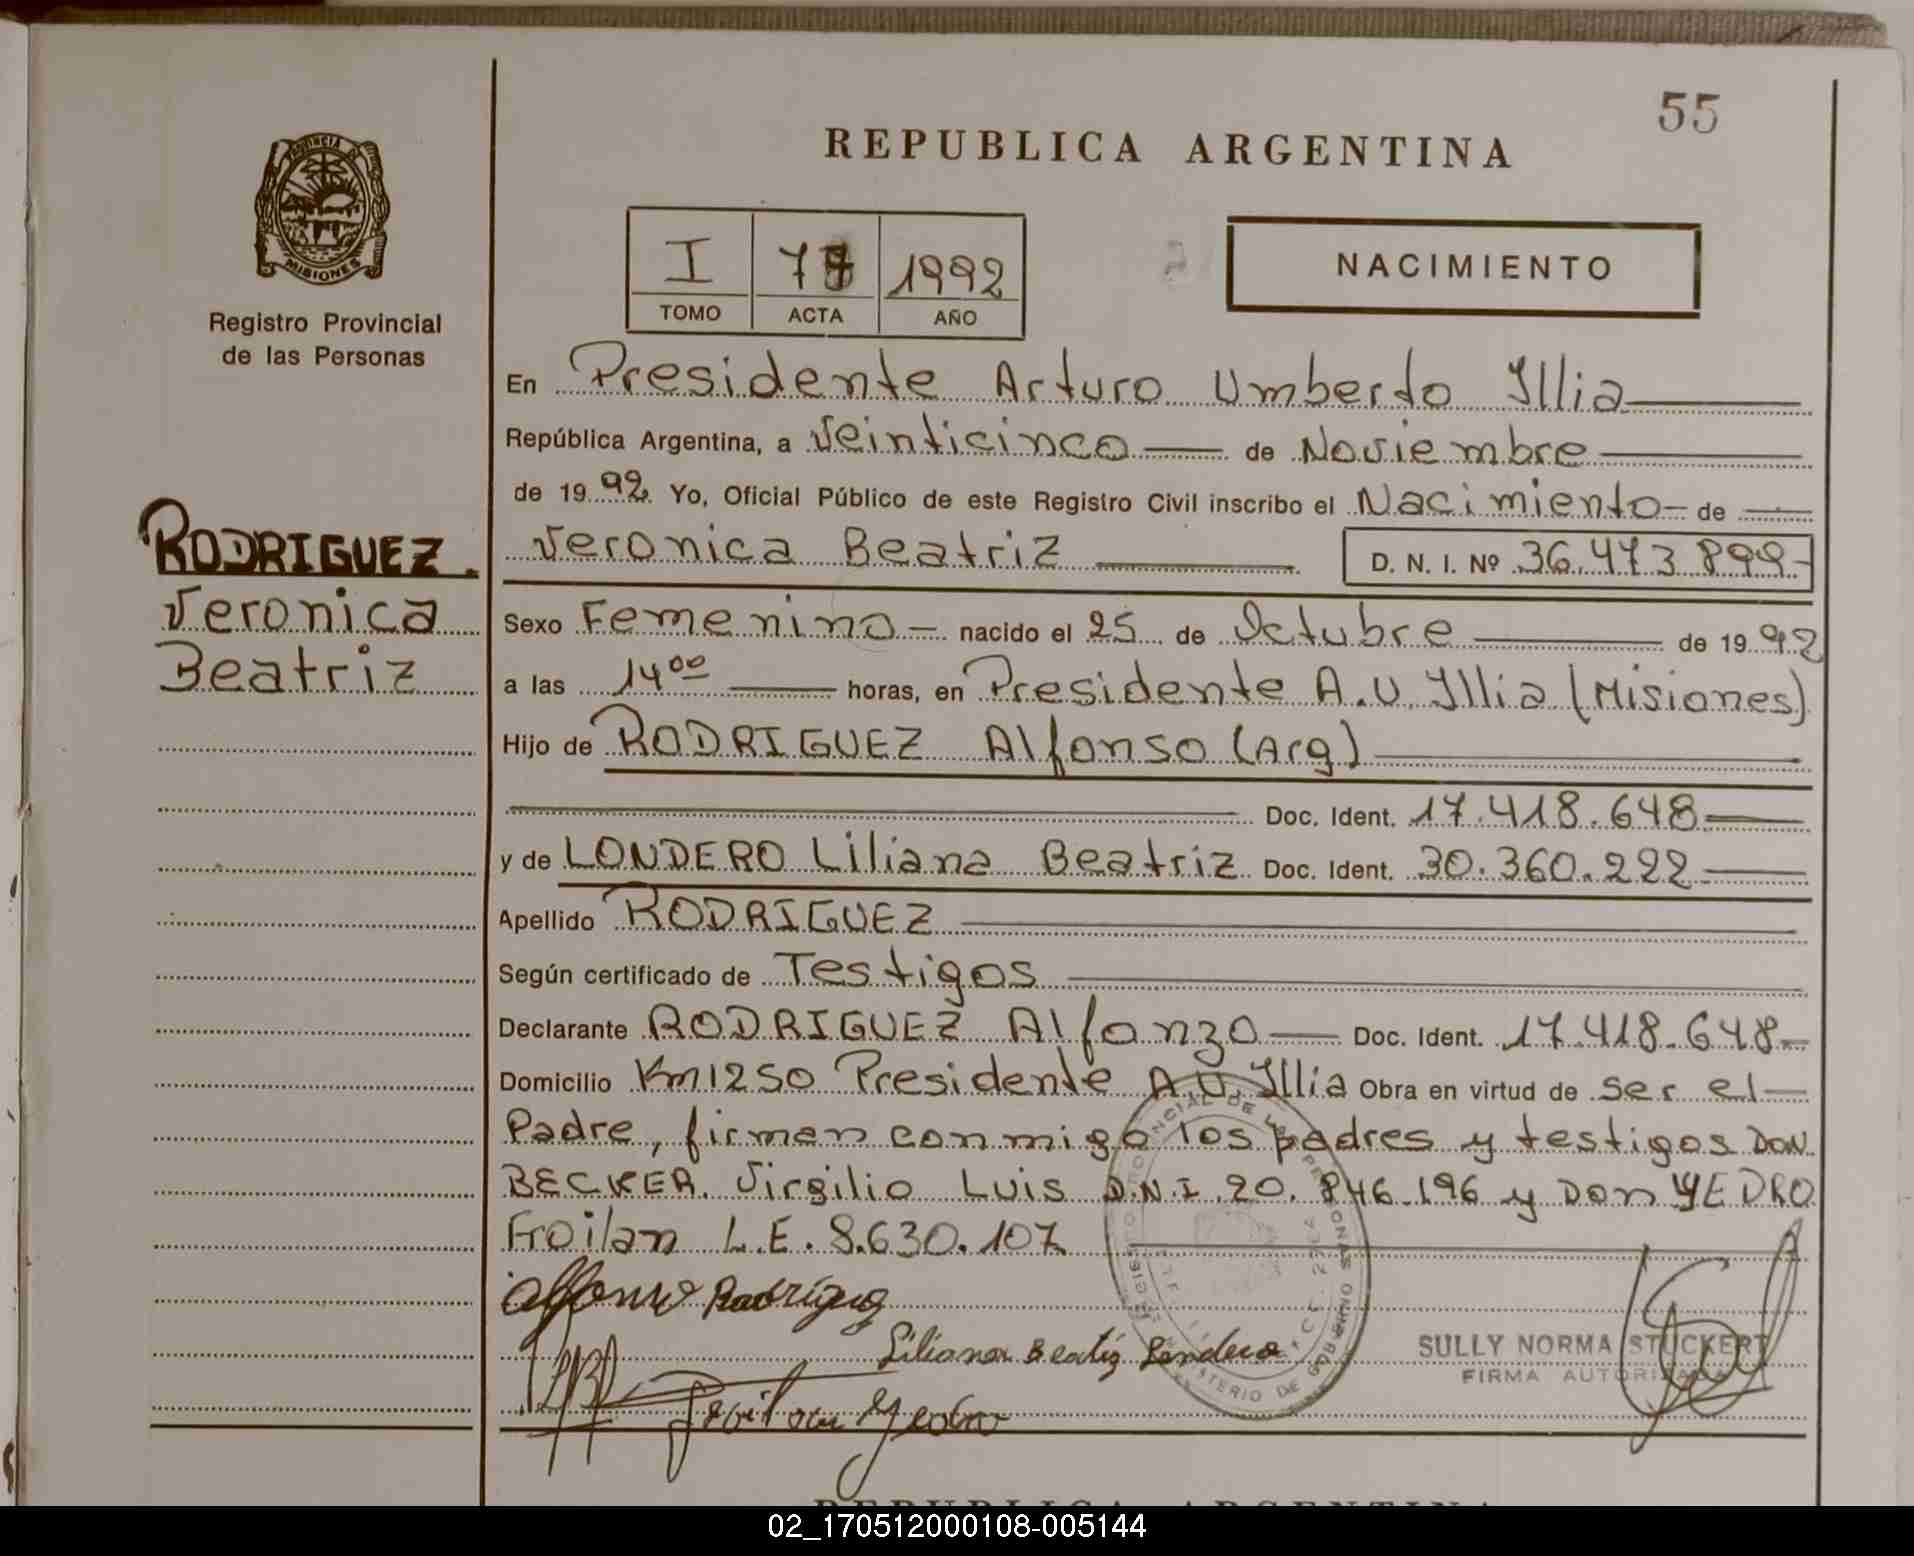 55
REPUBLICA ARGENTINA
PROVINCIA DE
MISIONES
Registro Provincial
de las Personas
I 1992
TOMO ACTA AÑO
NACIMIENTO
En Presidente Arturo Umberto Illia
República Argentina, a Veinticinco de Noviembre
de 1992 Yo, Oficial Público de este Registro Civil inscribo el Nacimiento de
Veronica Beatriz D. N. I. Nº 36.473.899
RODRIGUEZ
Veronica
Beatriz
Sexo Femenino nacido el 25 de Octubre de 1992
a las 14 00 horas, en Presidente A.U. Illia (Misiones)
Hijo de RODRIGUEZ Alfonso (Arg)
Doc. Ident. 17.418.648
y de LONDERO Liliana Beatriz Doc. Ident. 30.360.222
Apellido RODRIGUEZ
Según certificado de Testigos
Declarante RODRIGUEZ Alfonzo Doc. Ident. 17.418.648
Domicilio Km 1250 Presidente A.U. Illia Obra en virtud de ser el
Padre, firman conmigo los padres y testigos DON
BECKER Virgilio Luis D.N.I. 20.846.196 y Don YEDRO
Froilan L.E. 8.630.107
Alfonso Rodríguez
Liliana Beatriz Londero
SULLY NORMA STUCKERT
FIRMA AUTORIZADA
Froilan Yedro
REPUBLICA ARGENTINA
02_170512000108-005144